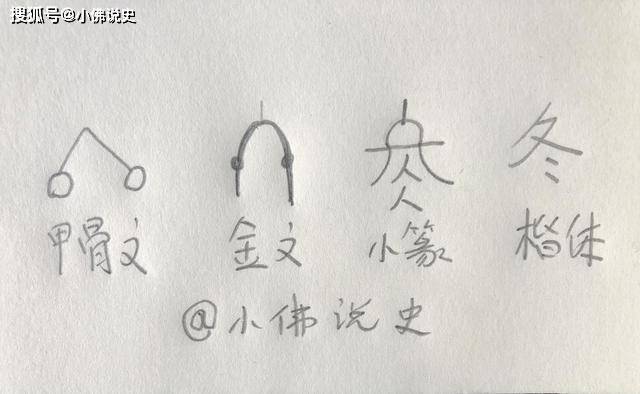 搜狐号@小佛说史
冬
甲骨文 金文 小篆 楷体
@小佛说史